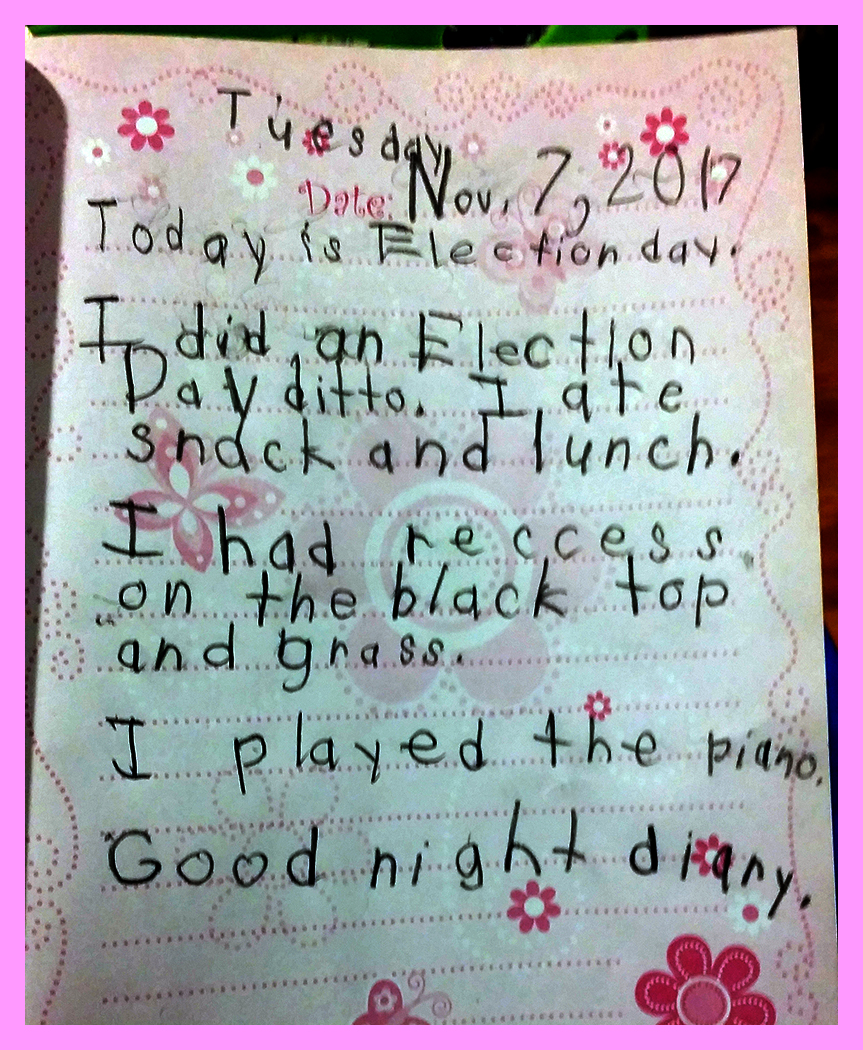 Tuesday
Date: Nov. 7, 2017
Today is Election day.
I did an Election
Day ditto. I ate
snack and lunch.
I had reccess
on the black top
and grass.
I played the piano.
Good night diary.